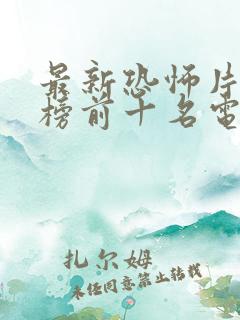 最新恐怖片
榜前十名電
扎尔姆
未经同意禁止转载